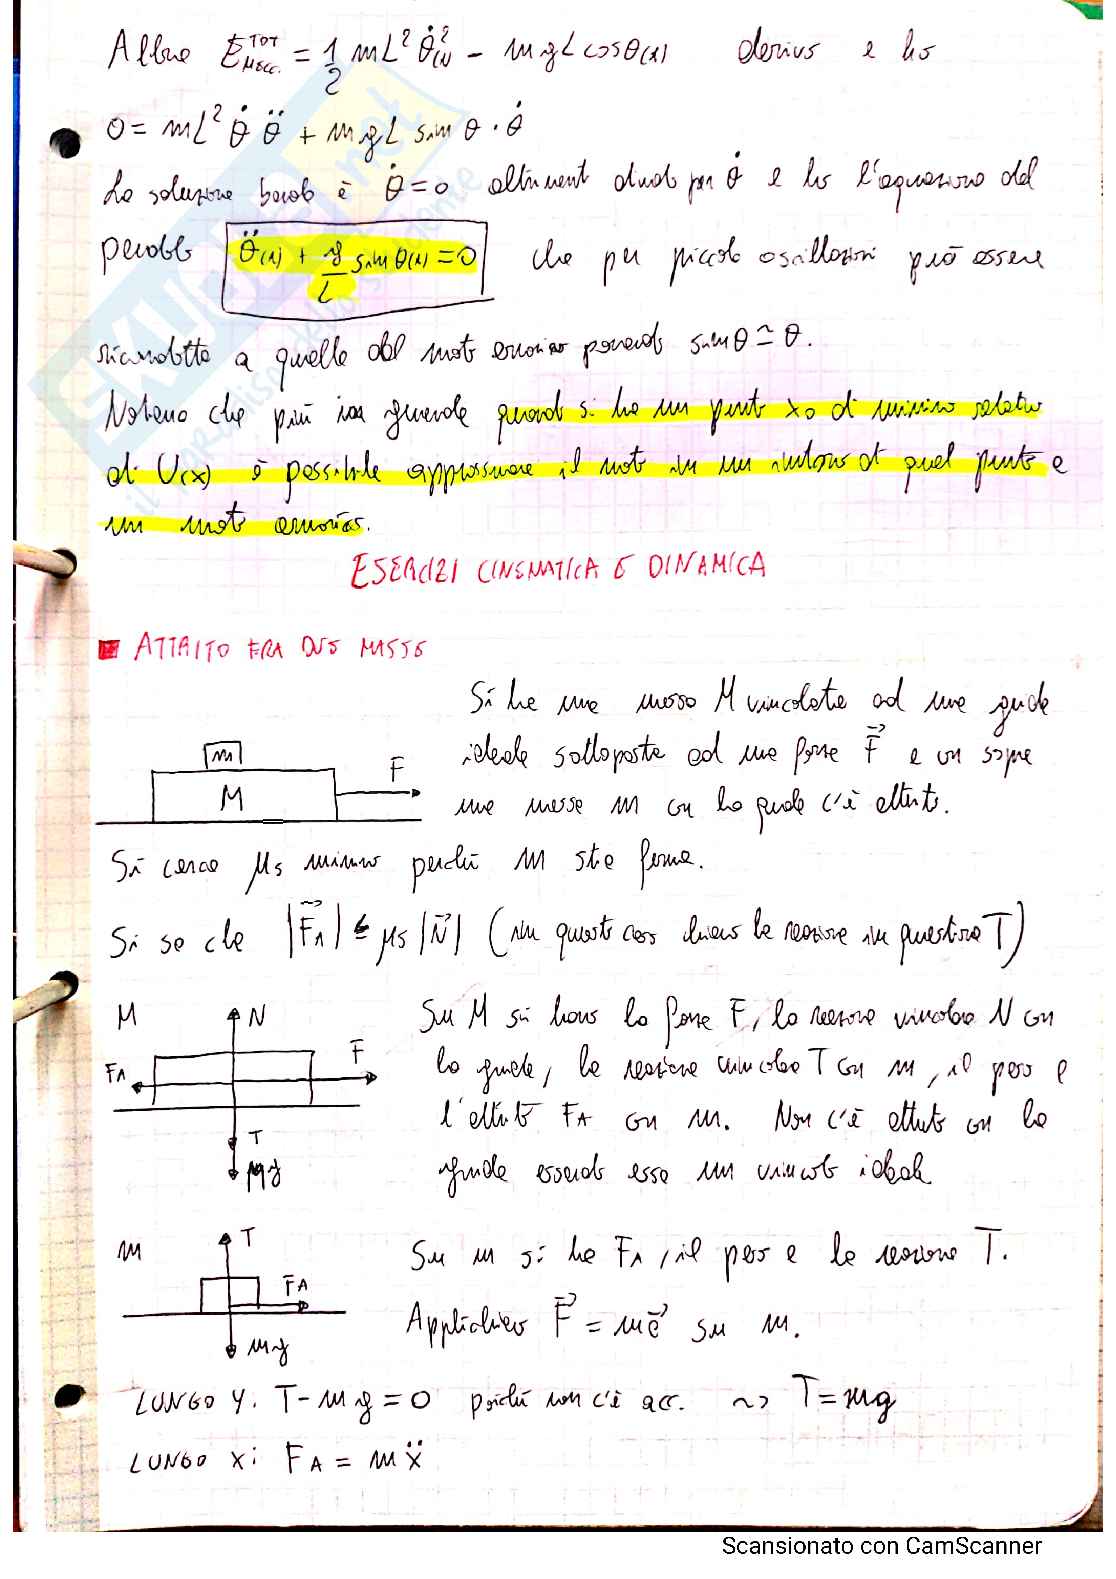 Allora E_MECC.^TOT = 1/2 mL² θ̇²(t) - mgL cosθ(t) derivo e ho
0 = mL² θ̇ θ̈ + mgL sin θ · θ̇
La soluzione banale è θ̇=0 altrimenti divido per θ̇ e ho l'equazione del
pendolo θ̈(t) + g/L sin θ(t) = 0 che per piccole oscillazioni può essere
ricondotta a quella del moto armonico ponendo sinθ ≃ θ.
Notiamo che più in generale quando si ha un punto x₀ di minimo relativo
di U(x) è possibile approssimare il moto in un intorno di quel punto a
un moto armonico.
ESERCIZI CINEMATICA E DINAMICA
ATTRITO FRA DUE MASSE
Si ha una massa M vincolata ad una guida
ideale sottoposta ad una forza F⃗ e con sopra
una massa m con la quale c'è attrito.
m
M
F
Si cerca μs minimo perché m stia ferma.
Si sa che |F⃗A| ≤ μs |N⃗| (in questo caso chiamo la reazione in questione T)
M
N
FA
F̄
T
Mg
Su M si hanno la forza F, la reazione vincolare N con
la guida, la reazione vincolare T con m, il peso e
l'attrito FA con m. Non c'è attrito con la
guida essendo essa un vincolo ideale
m
T
F̄A
mg
Su m si ha FA, il peso e la reazione T.
Applichiamo F⃗ = ma⃗ su m.
LUNGO Y: T - mg = 0 poiché non c'è acc. ⇝ T = mg
LUNGO X: FA = mẍ
Scansionato con CamScanner